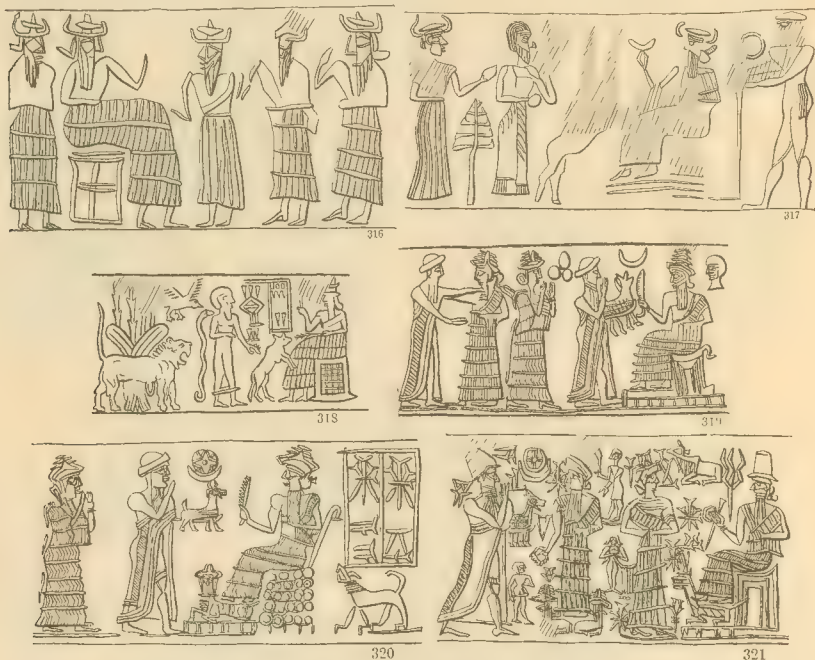 316
317
318
319
320
321